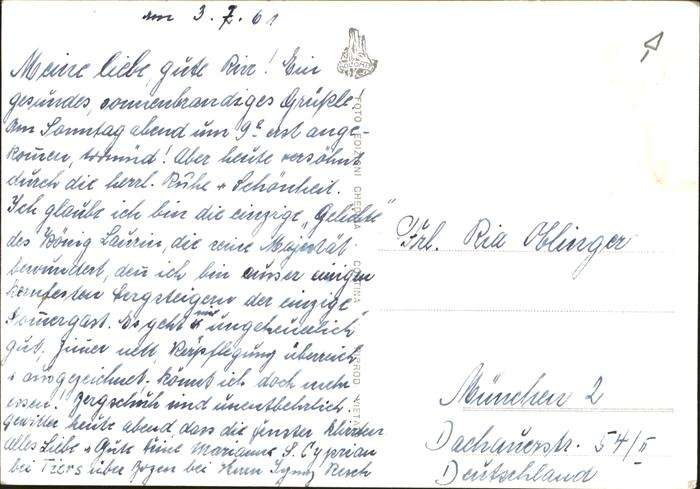 am 3. 7. 61
Meine liebe, gute Ria! Ein
gesundes, sonnenbrandiges Grüßle!
Am Sonntag abend um 9h erst ange-
kommen, todmüd! Aber heute versöhnt
durch die herrl. Ruhe + Schönheit.
Ich glaube ich bin die einzige "Geliebte"
des König Laurin, die seine Majestät
bewundert, denn ich bin ausser einigen
Bergsteigern der einzige
Sommergast. Es geht mir ungeheuerlich
gut, Zimmer nett, Verpflegung überreich
+ ausgezeichnet, könnt ich doch mehr
essen! Bergschuh sind unentbehrlich.
Gewitter heute abend, dass die Fenster klirrten
alles Liebe + Gute Deine Marianne, S. Cyprian
bei Tiers über Bozen bei Herrn
FOTO EDIZIONI GHEDINA CORTINA
Frl. Ria Oblinger
München 2
Dachauerstr. 54/II
Deutschland